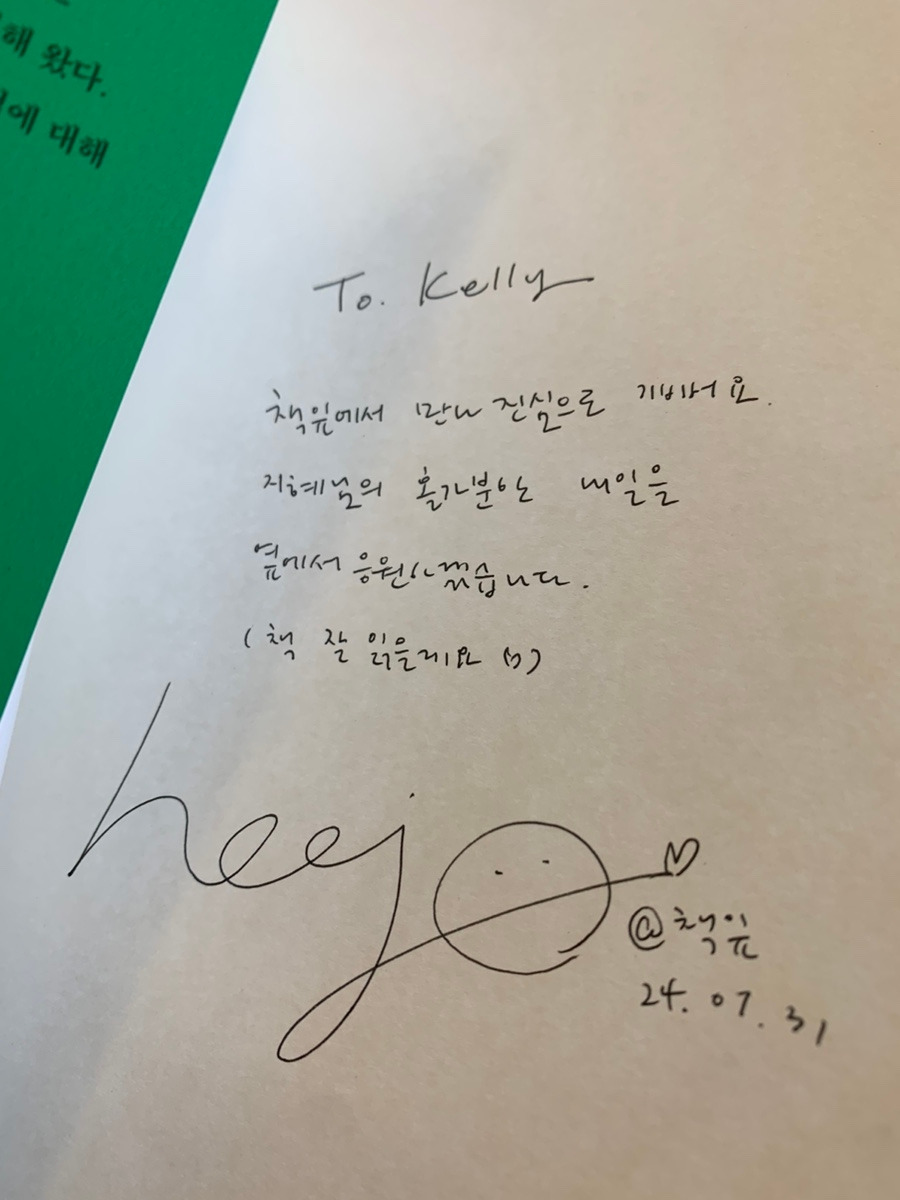 해 왔다.
에 대해
To. Kelly
책잎에서 만나 진심으로 기뻐요.
지혜님의 홀가분한 내일을
옆에서 응원하겠습니다.
(책 잘 읽을게요 ♡)
heejo
@책잎
24.07.31